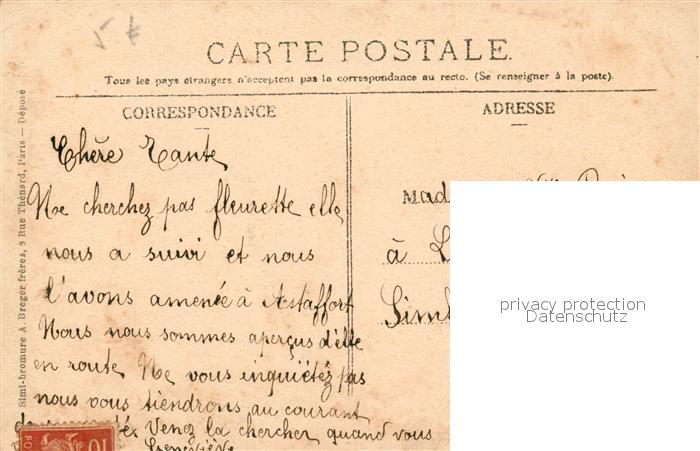 CARTE POSTALE.
Tous les pays étrangers n'acceptent pas la correspondance au recto. (Se renseigner à la poste).
CORRESPONDANCE
Chère Tante
Ne cherchez pas fleurette elle
nous a suivi et nous
l'avons amenée à Astaffort
Nous nous sommes aperçus d'elle
en route Ne vous inquiétez pas
nous vous tiendrons au courant
Venez la chercher quand vous
Geneviève
ADRESSE
Mad
à L
Simb
privacy protection
Datenschutz
Simi-bromure A. Breger frères, 9 Rue Thénard, Paris — Déposé
10
PO